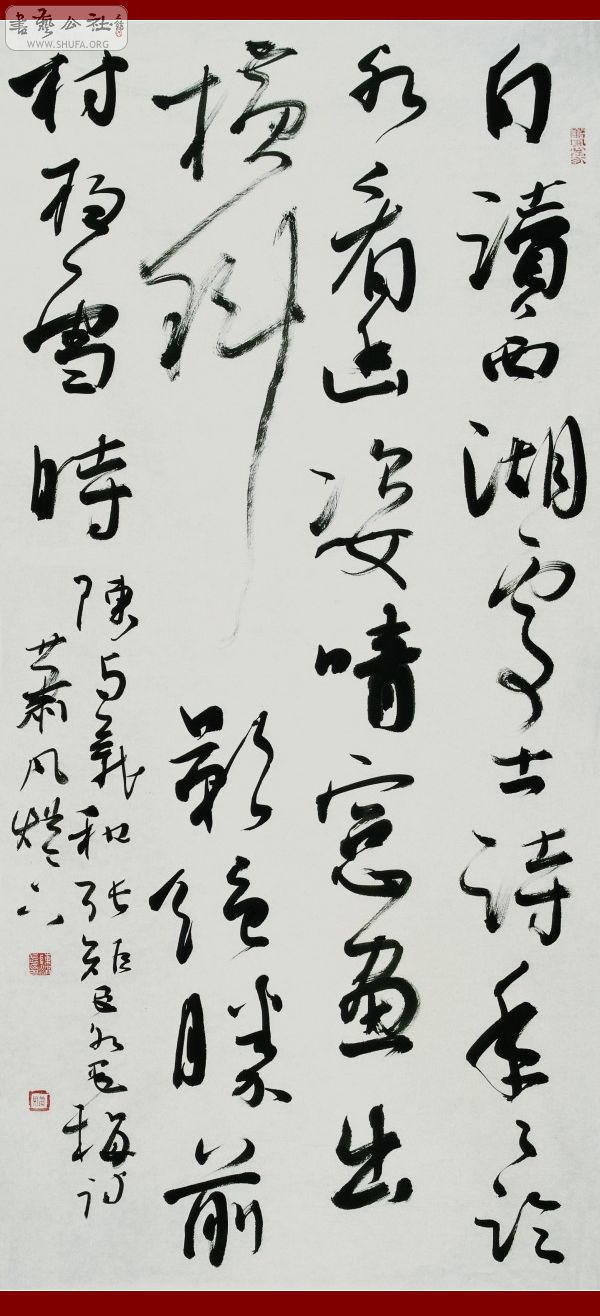 書藝公社
WWW.SHUFA.ORG
自讀西湖處士詩年々臨
水看幽姿晴窗畫出
橫斜影絕勝前
村夜雪時
陳与義和張矩臣水墨梅詩